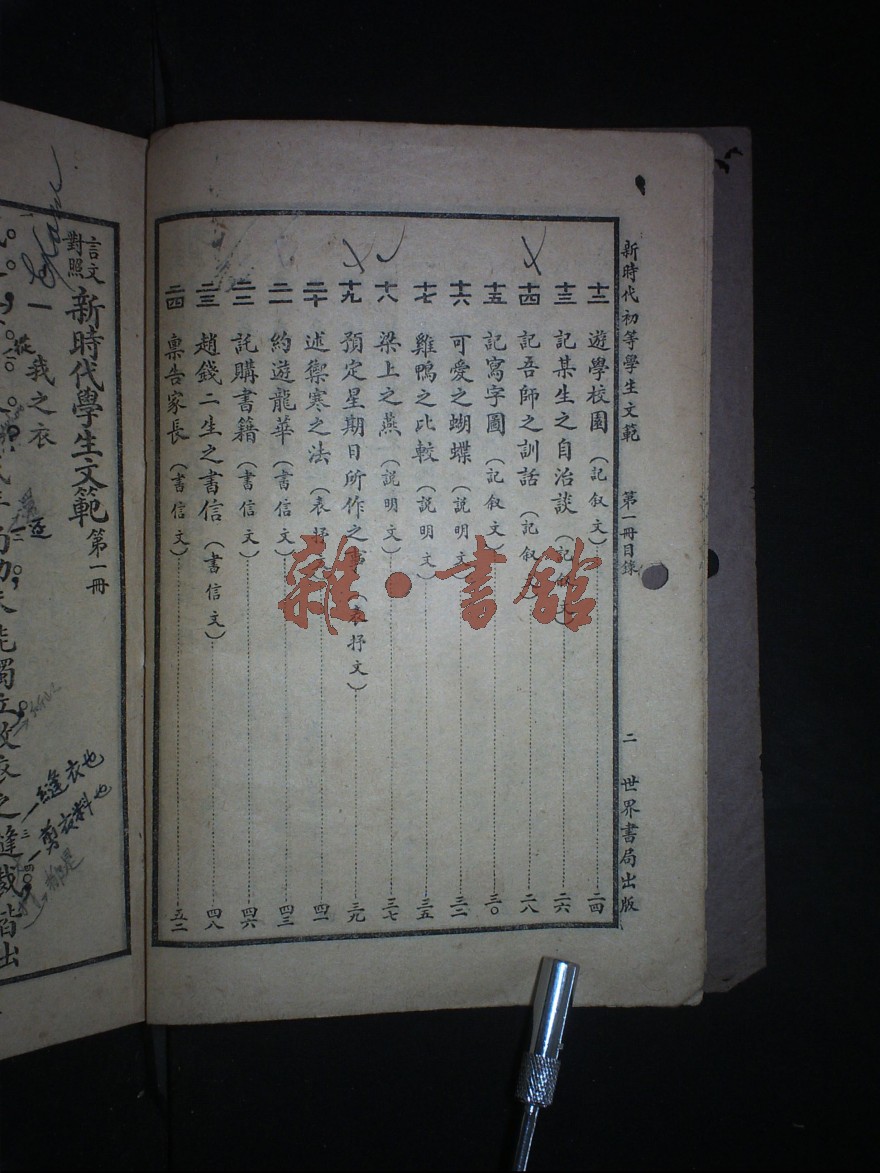 新時代初等學生文範　第一冊目錄　二　世界書局出版
十二　遊學校園（記敘文）……二四
十三　記某生之自治談（記敘文）……二六
十四　記吾師之訓話（記敘……二八
十五　記寫字圖（記敘文）……三〇
十六　可愛之蝴蝶（說明文）……三二
十七　雞鴨之比較（說明文）……三五
十八　梁上之燕（說明文）……三七
十九　預定星期日所作之事（表抒文）……三九
二十　述禦寒之法（表抒……四一
二一　約遊龍華（書信文）……四三
二二　託購書籍（書信文）……四六
二三　趙錢二生之書信（書信文）……四八
二四　稟告家長（書信文）……五二
雜·書館
言文對照　新時代學生文範　第一冊
一　我之衣
幼未能獨立故衣之縫裁皆出
縫衣也
剪衣料也